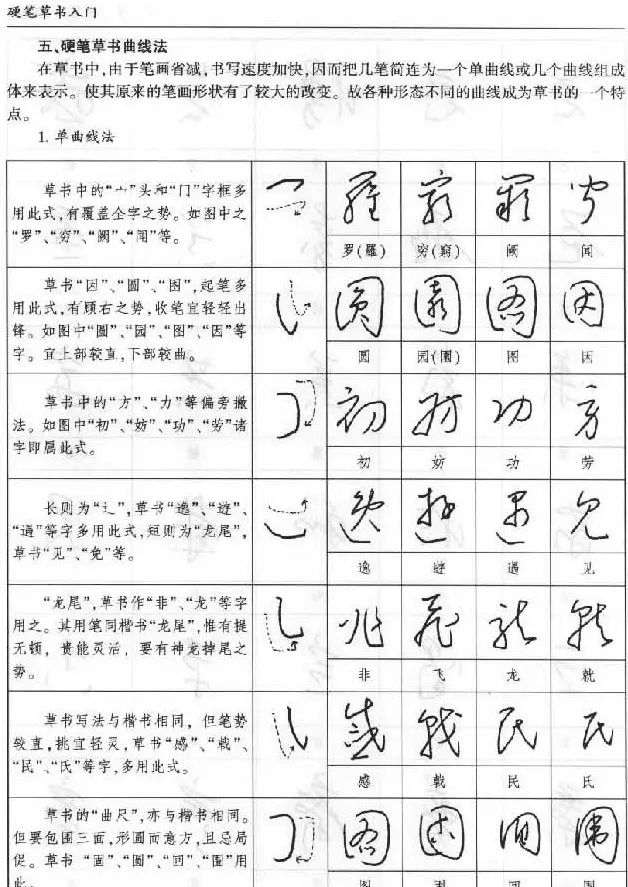 硬笔草书入门
五、硬笔草书曲线法
在草书中,由于笔画省减,书写速度加快,因而把几笔简连为一个单曲线或几个曲线组成
体来表示。使其原来的笔画形状有了较大的改变。故各种形态不同的曲线成为草书的一个特
点。
1. 单曲线法
草书中的“亠”头和“门”字框多
用此式,有覆盖全字之势。如图中之
“罗”、“穷”、“阙”、“闻”等。
罗(羅) 穷(窮) 阙 闻
草书“因”、“圆”、“图”,起笔多
用此式,有顾右之势,收笔宜轻轻出
锋。如图中“圆”、“园”、“图”、“因”等
字。宜上部较直,下部较曲。
圆 园(園) 图 因
草书中的“方”、“力”等偏旁撇
法。如图中“初”、“妨”、“功”、“劳”诸
字即属此式。
初 妨 功 劳
长则为“辶”,草书“逸”、“逰”、
“遇”等字多用此式,短则为“龙尾”,
草书“见”、“免”等。
逸 遇 见
“龙尾”,草书作“非”、“龙”等字
用之。其用笔同楷书“龙尾”,惟有提
无顿,贵能灵活,要有神龙掉尾之
势。
非 飞 龙 就
草书写法与楷书相同,但笔势
较直,挑宜轻灵,草书“感”、“戟”、
“民”、“氏”等字,多用此式。
感 戟 民 氏
草书的“曲尺”,亦与楷书相同。
但要包围三面,形圆而意方,且忌局
促。草书“图”、“圆”、“回”、“围”用
此。